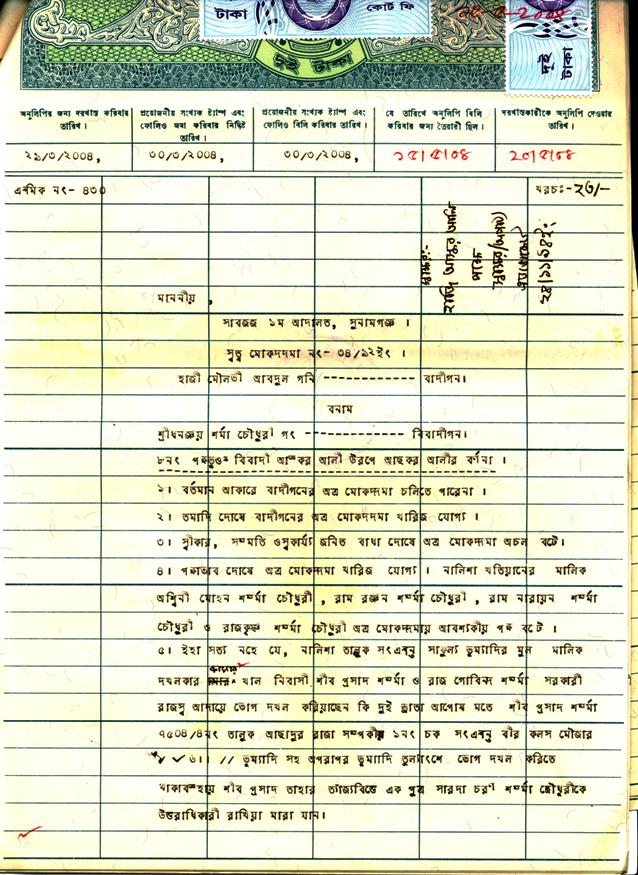 টাকা
কোর্ট ফি
দুই টাকা
দুই টাকা
অনুলিপির জন্য দরখাস্ত করিবার তারিখ।
প্রয়োজনীয় সংখ্যক ষ্ট্যাম্প এবং ফোলিও জমা করিবার নির্দ্দিষ্ট তারিখ।
প্রয়োজনীয় সংখ্যক ষ্ট্যাম্প এবং ফোলিও বিলি করিবার তারিখ।
যে তারিখে অনুলিপি বিলি করিবার জন্য তৈয়ারী ছিল।
দরখাস্তকারীকে অনুলিপি দেওয়ার তারিখ।
২১/৩/২০০৪,
৩০/৩/২০০৪,
৩০/৩/২০০৪,
১৫/৫/০৪
২০/৫/০৪
এমিক নং- ৪৩৩
খরচঃ-২৬/-
মাননীয় ,
সাবজজ ১ম আদালত, সুনামগঞ্জ ।
স্বত্ব মোকদ্দমা নং- ৩৪/১২ইং ।
হাজী মৌলভী আবদুল গনি ------------- বাদীগন।
বনাম
শ্রীধনঞ্জয় শর্মা চৌধুরী গং ------------- বিবাদীগন।
৮নং পক্ষভুক্ত বিবাদী আস্কর আলী উরপে আছকর আলীর বর্ণনা ।
১। বর্তমান আকারে বাদীগনের অত্র মোকদ্দমা চলিতে পারেনা ।
২। তমাদি দোষে বাদীগনের অত্র মোকদ্দমা খারিজ যোগ্য ।
৩। স্বীকার, সম্মতি ওস্বকার্য্য জনিত বাধা দোষে অত্র মোকদ্দমা অচল বটে।
৪। পক্ষাভাব দোষে অত্র মোকদ্দমা খারিজ যোগ্য । নালিশা খতিয়ানের মালিক
অশ্বিনী মোহন শর্ম্মা চৌধুরী , রাম রঞ্জন শর্ম্মা চৌধুরী , রাম নারায়ন শর্ম্মা
চৌধুরী ও রাজকৃষ্ণ শর্ম্মা চৌধুরী অত্র মোকদ্দমায় আবশ্যকীয় পক্ষ বটে ।
৫। ইহা সত্য নহে যে, নালিশা তালুক সংএবনু সাকুল্য ভূম্যাদির মুল মালিক
দখলকার খাল নিবাসী শীব প্রসাদ শর্ম্মা ও রাজ গোবিন্দ শর্ম্মা সরকারী
রাজস্ব আদায়ে ভোগ দখল করিয়াছেন কি দুই ভ্রাতা আপোষ মতে শীব প্রসাদ শর্ম্মা
৭৫০৪/৪নং তালুক আছাদুর রাজা সম্পর্কীয় ১নং চক সংএবনু বীর কলস মৌজার
৬। // ভূম্যাদি সহ অপরাপর ভূম্যাদি তুল্যাংশে ভোগ দখল করিতে
থাকাবস্হায় শীব প্রসাদ তাহার ত্যাজ্যবিত্তে এক পুত্র সারদা চরণ শর্ম্মা চৌধুরীকে
উত্তরাধিকারী রাখিয়া মারা যান।